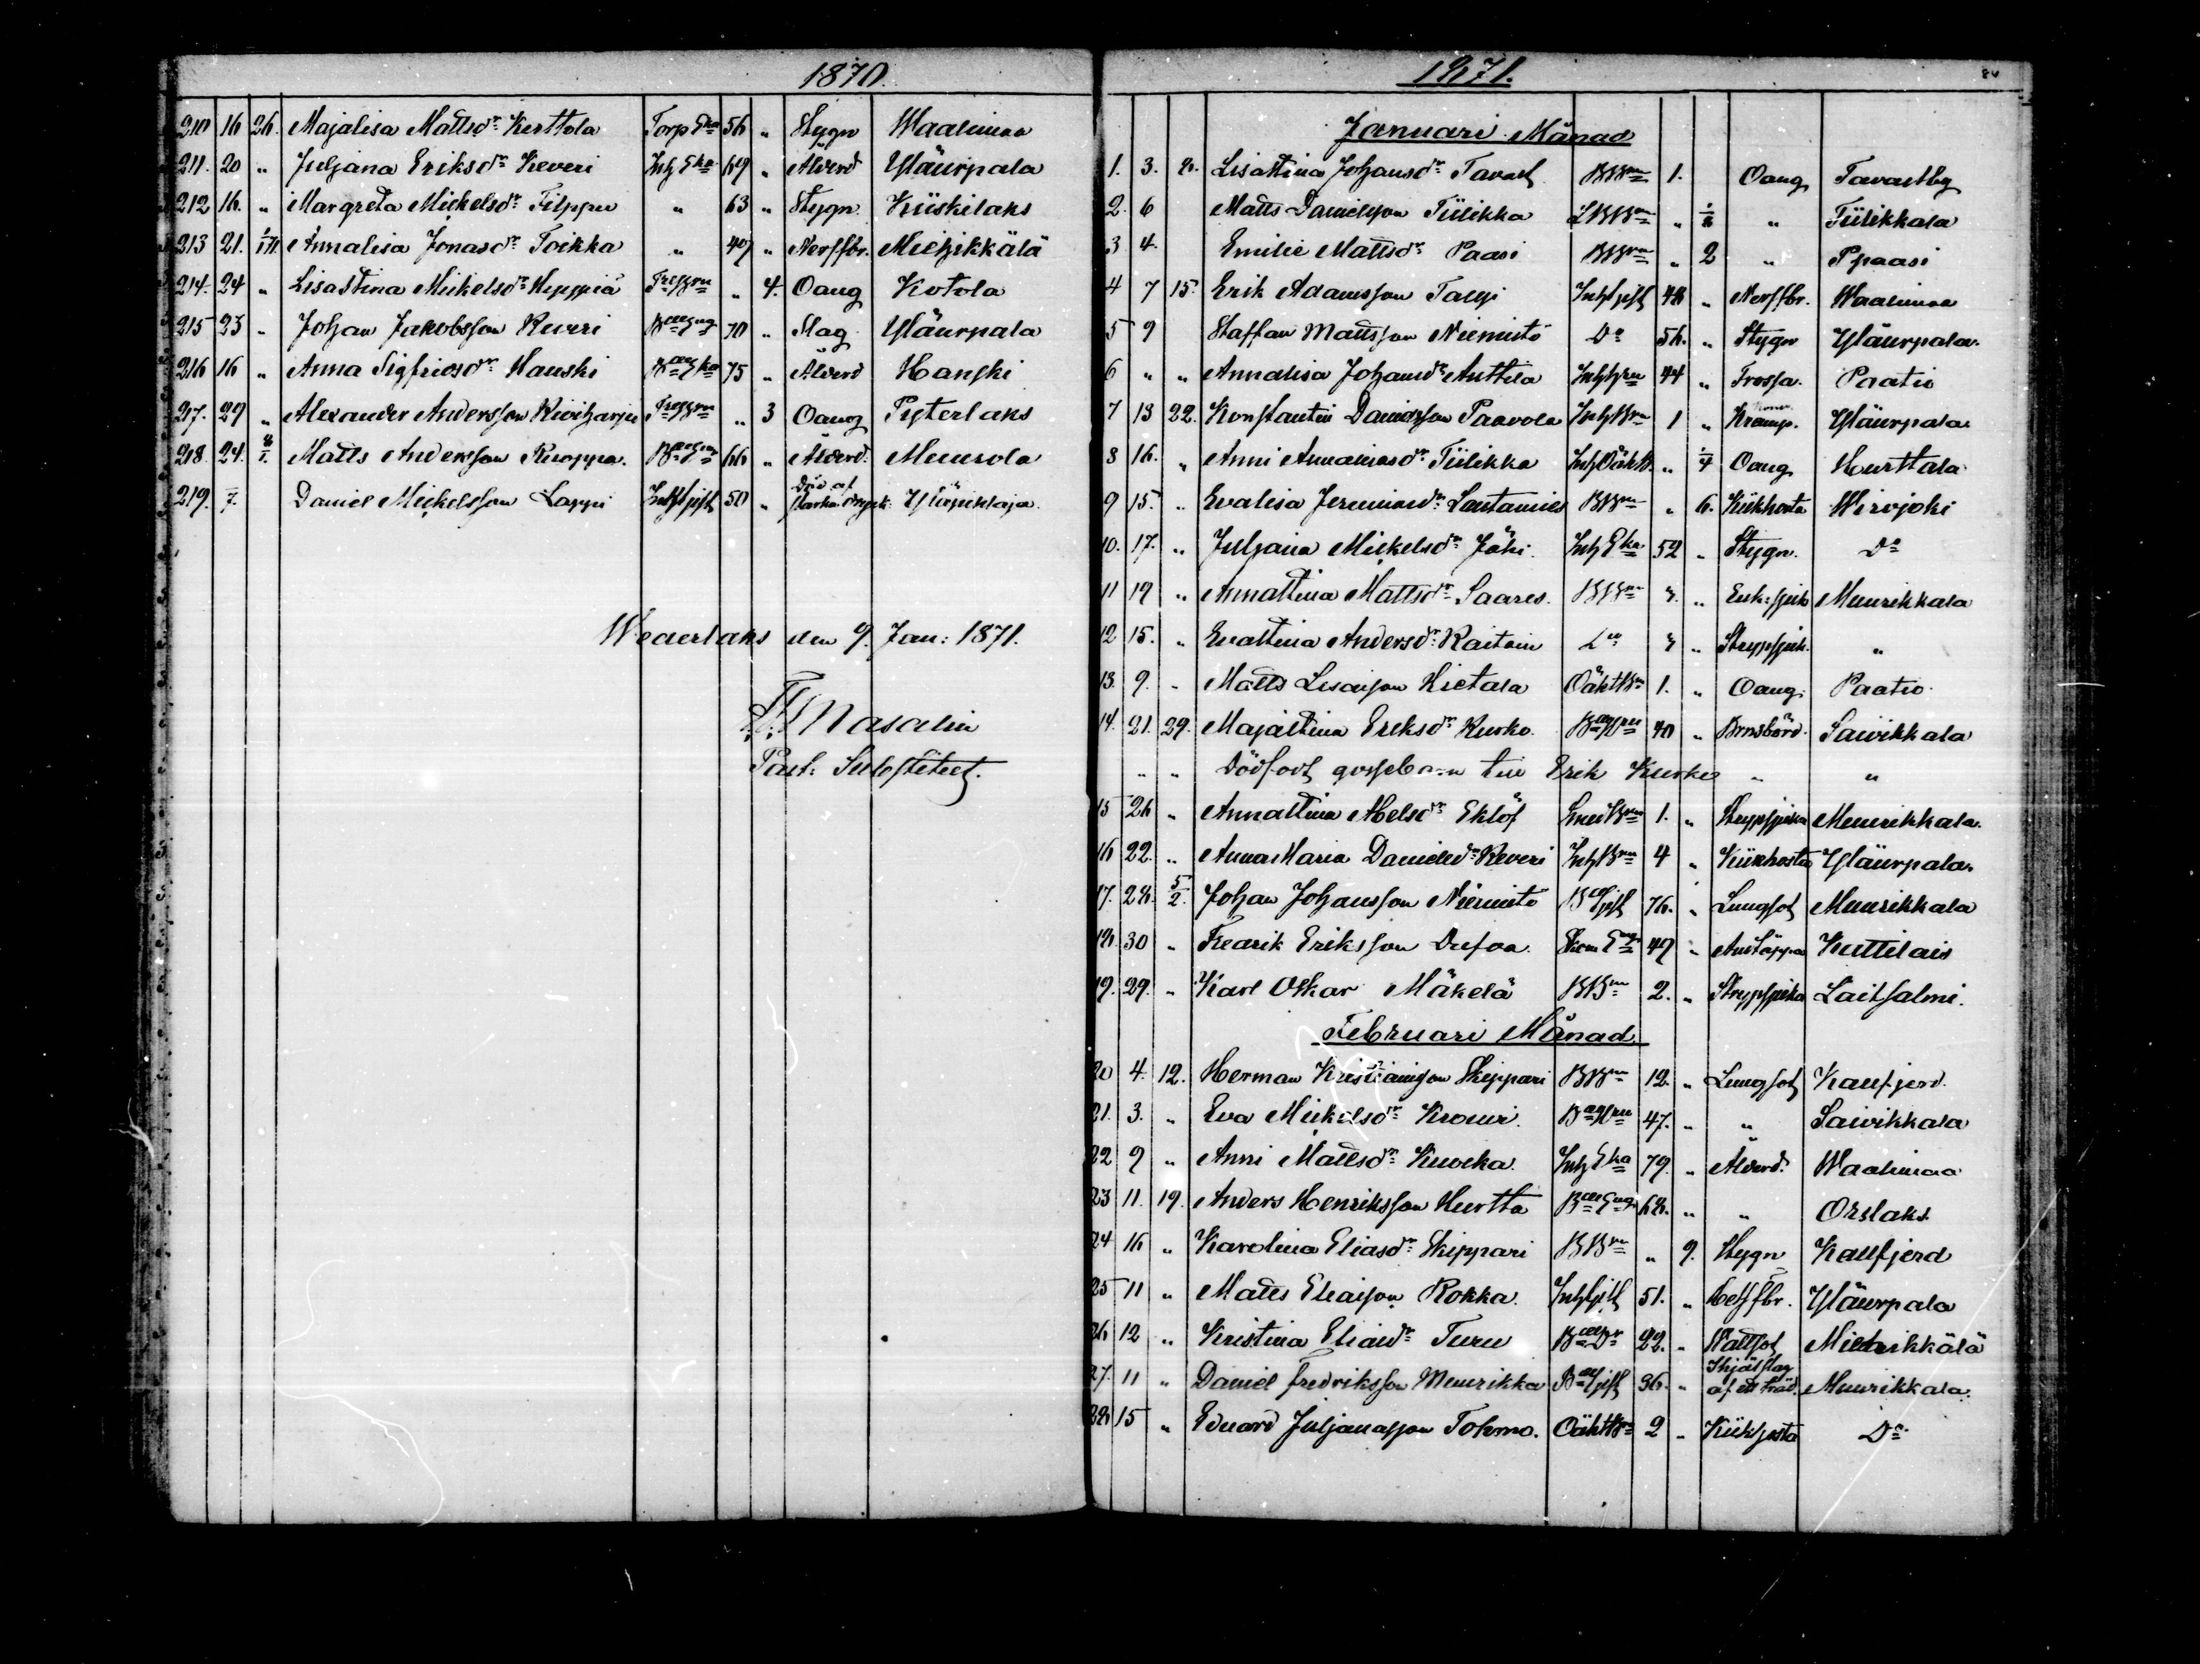 1870.
210 16 26. Majalisa Mattsdr Kerttola Torp Eka 56 " Stygn Waalimaa
211. 20 " Juljana Eriksdr Keveri Inh Eka 69 " Ålderd Yläurpala
212 16. " Margreta Mickelsdr Filppu " 63 " Stygn Kiiskilaks
213 21. 1/1 71. Annalisa Jonasdr Toikka " 49 " Nerffbr. Miehikkälä
214. 24 " Lisastina Mickelsdr Heppiä " 4. Oang Kotola
215 23 " Johan Jakobsson Keveri 70 " Slag Yläurpala
216 16 " Anna Sigfridsdr Hanski 75 " Ålderd Hanski
217. 29 " Alexander Andersson Kiviharju " 3 Oang Pyterlaks
218. 24. 8/1. Matts Andersson Ruoppa. 66 " Ålderd. Muurola
219. 7. Daniel Mickelsson Lappi Inhgift 50 " Död af starka dryck.
Wederlaks den 9. Jan: 1871.
Nasalin
Past: Substitut.
1871.
84
Januari Månad
1. 3. 8. Lisastina Johansdr Tavast BBrn 1. Oang Tavastby
2. 6 Matts Danielsson Tiilikka " " Tiilikkala
3 4. Emilie Mattsdr Paasi BBrn " 2 " Ppaasi
4 7 15. Erik Adamsson Talji Inhgift 48 " Nerffbr. Waalimaa
5 9 Staffan Mattsson Niemistö Do 56. " Stygn Yläurpala.
6 " " Annalisa Johansdr Anttila Inhhru 44 " Frossa. Paatio
7 13 22. Konstantin Danielsson Paavola InhBrn 1 " Kramp. Yläurpala.
8 16. " Anni Ananiasdr Tiilikka " 1/4 Oang Hurttala
9 15. " Evalisa Jeremiasdr Santamies BBrn " 6. Kikhosta Wirojoki
10. 17. " Juljana Mickelsdr Jäki. Inh Eka 52 " Stygn. Do
11 19 " Annastina Mattsdr Saares. BBrn 3. " Muurikkala
12 15. " Evastina Andersdr Raitain Do 3 " Strypsjuk. "
13. 9. " Matts Lisasson Hietala OäktBrn 1. " Oang. Paatio.
14. 21. 29. Majastina Eriksdr Kurko. 40 " Brnsbörd. Saivikkala
" " Dödfödt gossebarn till Erik Kurko " "
15 26 " Annastina Abelsdr Eklöf 1. " Strypsjuka Muurikkala.
16 22. " Anna Maria Danielsdr Keveri InhBrn 4 " Kikhosta Yläurpala.
17. 28. 5/2. Johan Johansson Niemistö 76. " Lungsot Muurikkala
18. 30 " Fredrik Eriksson Dufva. 49 " Andtäppa Kuttilais
19. 29. " Karl Oskar Mäkelä BBrn 2. " Strypsjuka Laitsalmi.
Februari Månad
20 4. 12. Herman Kristiansson Skippari BBrn 12. " Lungsot Kallfjerd.
21. 3. " Eva Mickelsdr Krouvi. 47. " " Saivikkala
22 9 " Anni Mattsdr Kuokka. Inh Eka 79. " Ålderd. Waalimaa
23 11. 19. Anders Henriksson Hurtta 68. " " Orslaks
24 16 " Karolina Eliasdr Skippari BBrn " 9. Stygn Kallfjerd
25 11 " Matts Eliasson Rokka. Inhgift 51. " Yläurpala
26 12 " Kristina Eliasdr Turu 22. " Wattsot Miehikkälä
27. 11 " Daniel Fredriksson Muurikka 36. " Ihjälslag af ett träd. Muurikkala.
28 15 " Eduard Juljanasson Tohmo. OäktBrn 2 " Kikhosta Do